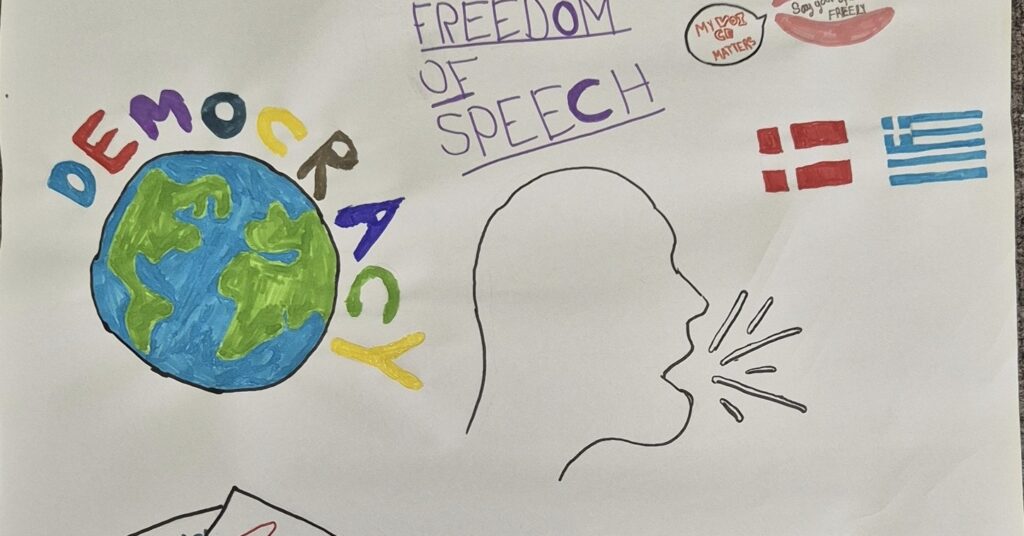 FREEDOM
OF
SPEECH
MY VOICE
MATTERS
Say your
FREELY
DEMOCRACY